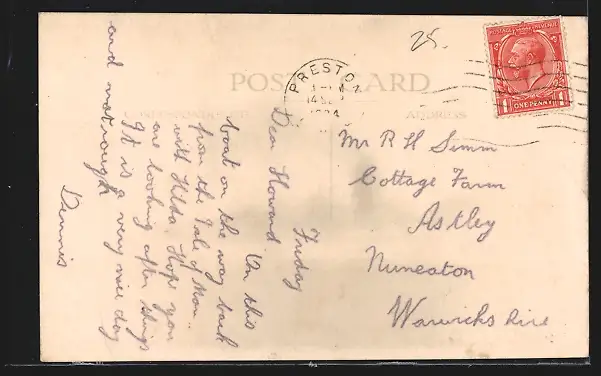 POST CARD
CORRESPONDENCE
ADDRESS
25.
PRESTO
14 SE
POSTAGE REVENUE
ONE PENNY
1 1
Friday
Dear Howard
On this
boat on the way back
from the Isle of Man
with Hilda. Hope you
are looking after things
It is a very nice day
and not rough
Dennis
Mr R H Simm
Cottage Farm
Astley
Nuneaton
Warwickshire